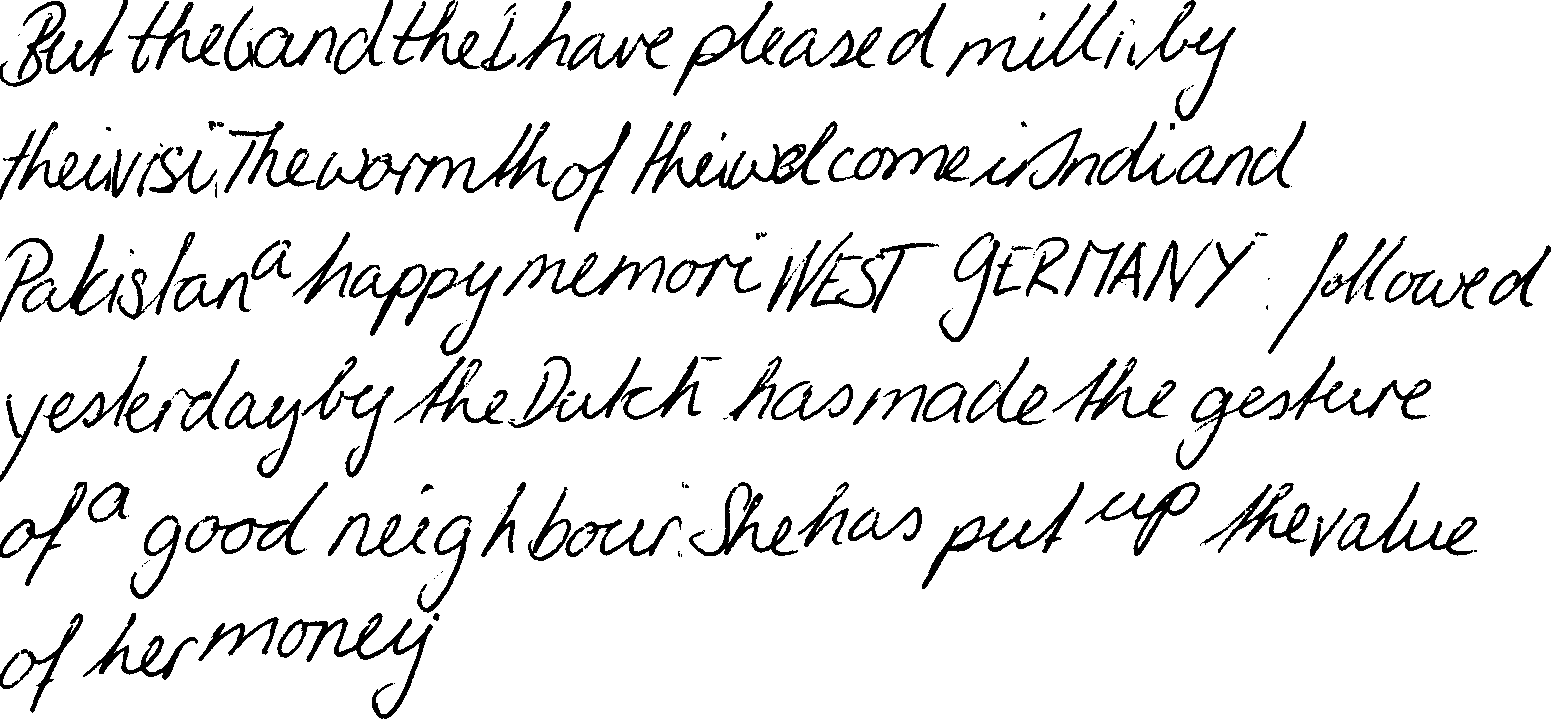 But the and the have pleased by
The warmth of welcome and
Pakistan a happy WEST GERMANY. followed
yesterday by the Dutch has made the gesture
of a good neighbour. She has put up the value
of her money